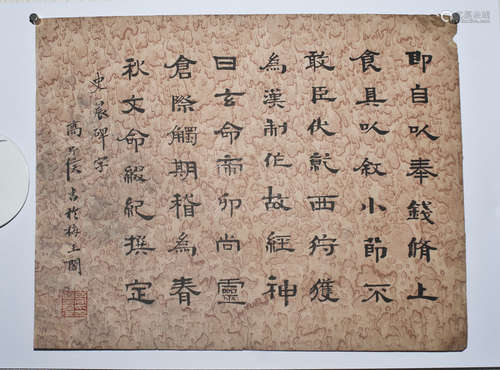 即自以奉錢脩上
食具以敘小節不
敢臣伏見西狩獲
為漢制作故經神
曰玄命帝卯尚靈
倉際觸期稽為春
秋文命綴紀撰定
史晨碑字
高 書於梅王閣